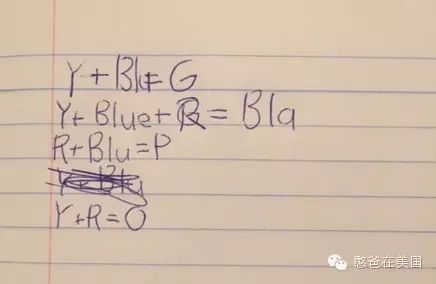 Y+Blu=G
Y+Blue+R=Bla
R+Blu=P
Y+R=O
憨爸在美国